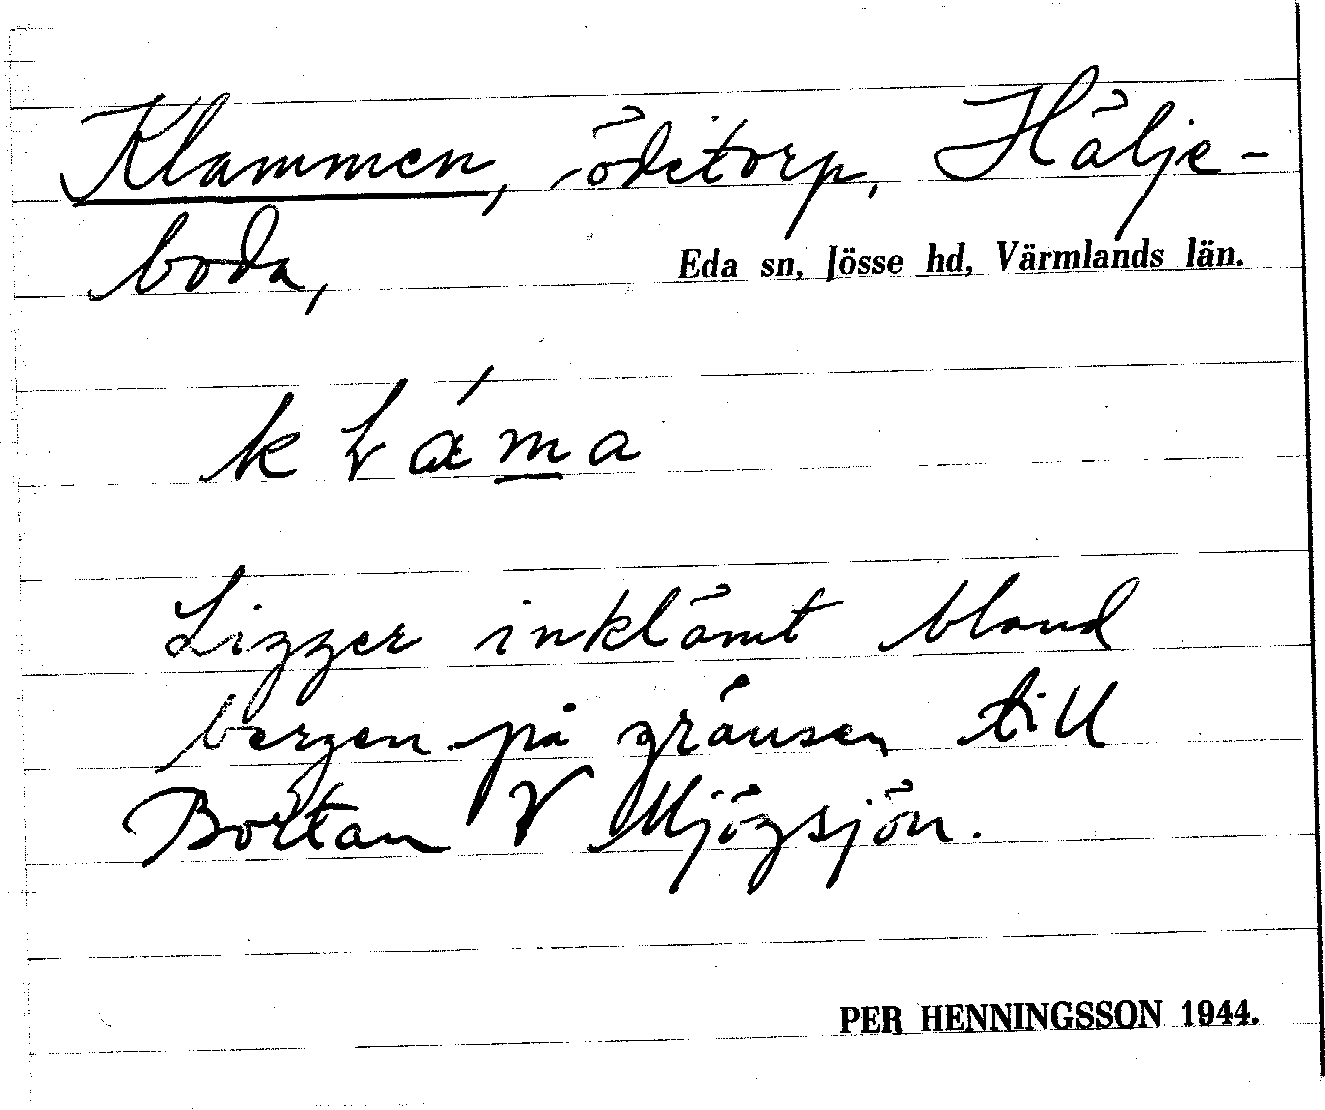 Klammen, ödetorp, Hälje-
boda,
Eda sn, Jösse hd, Värmlands län.
Ligger inklämt bland
bergen på gränsen till
Bortan V Mjögsjön.
PER HENNINGSSON 1944.